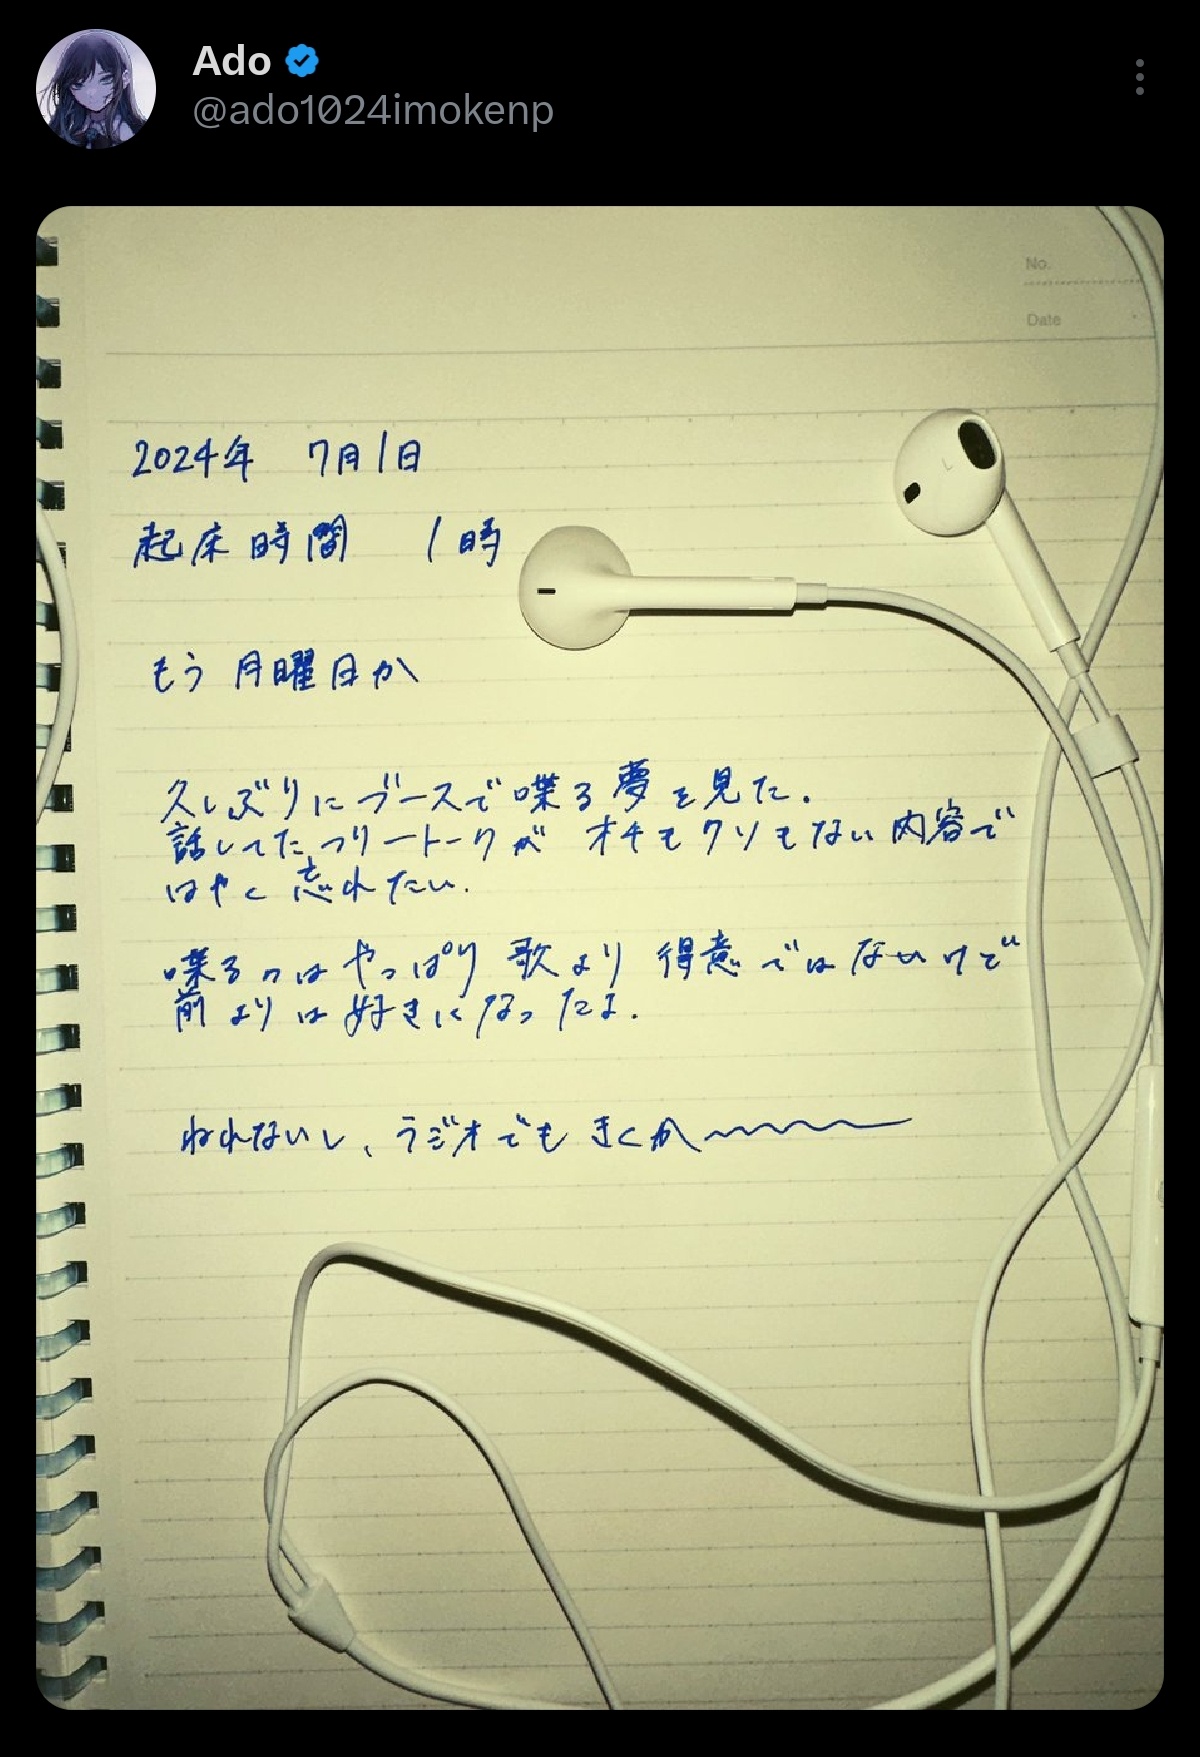 Ado
@ado1024imokenp
No.
Date
2024年 7月1日
起床時間 1時
もう月曜日か
久しぶりにブースで喋る夢を見た.
話してたフリートークが オチもクソもない内容で
はやく忘れたい.
喋るのはやっぱり歌より得意ではないけど
前よりは好きになったよ.
ねれないし、ラジオでもきくか〜